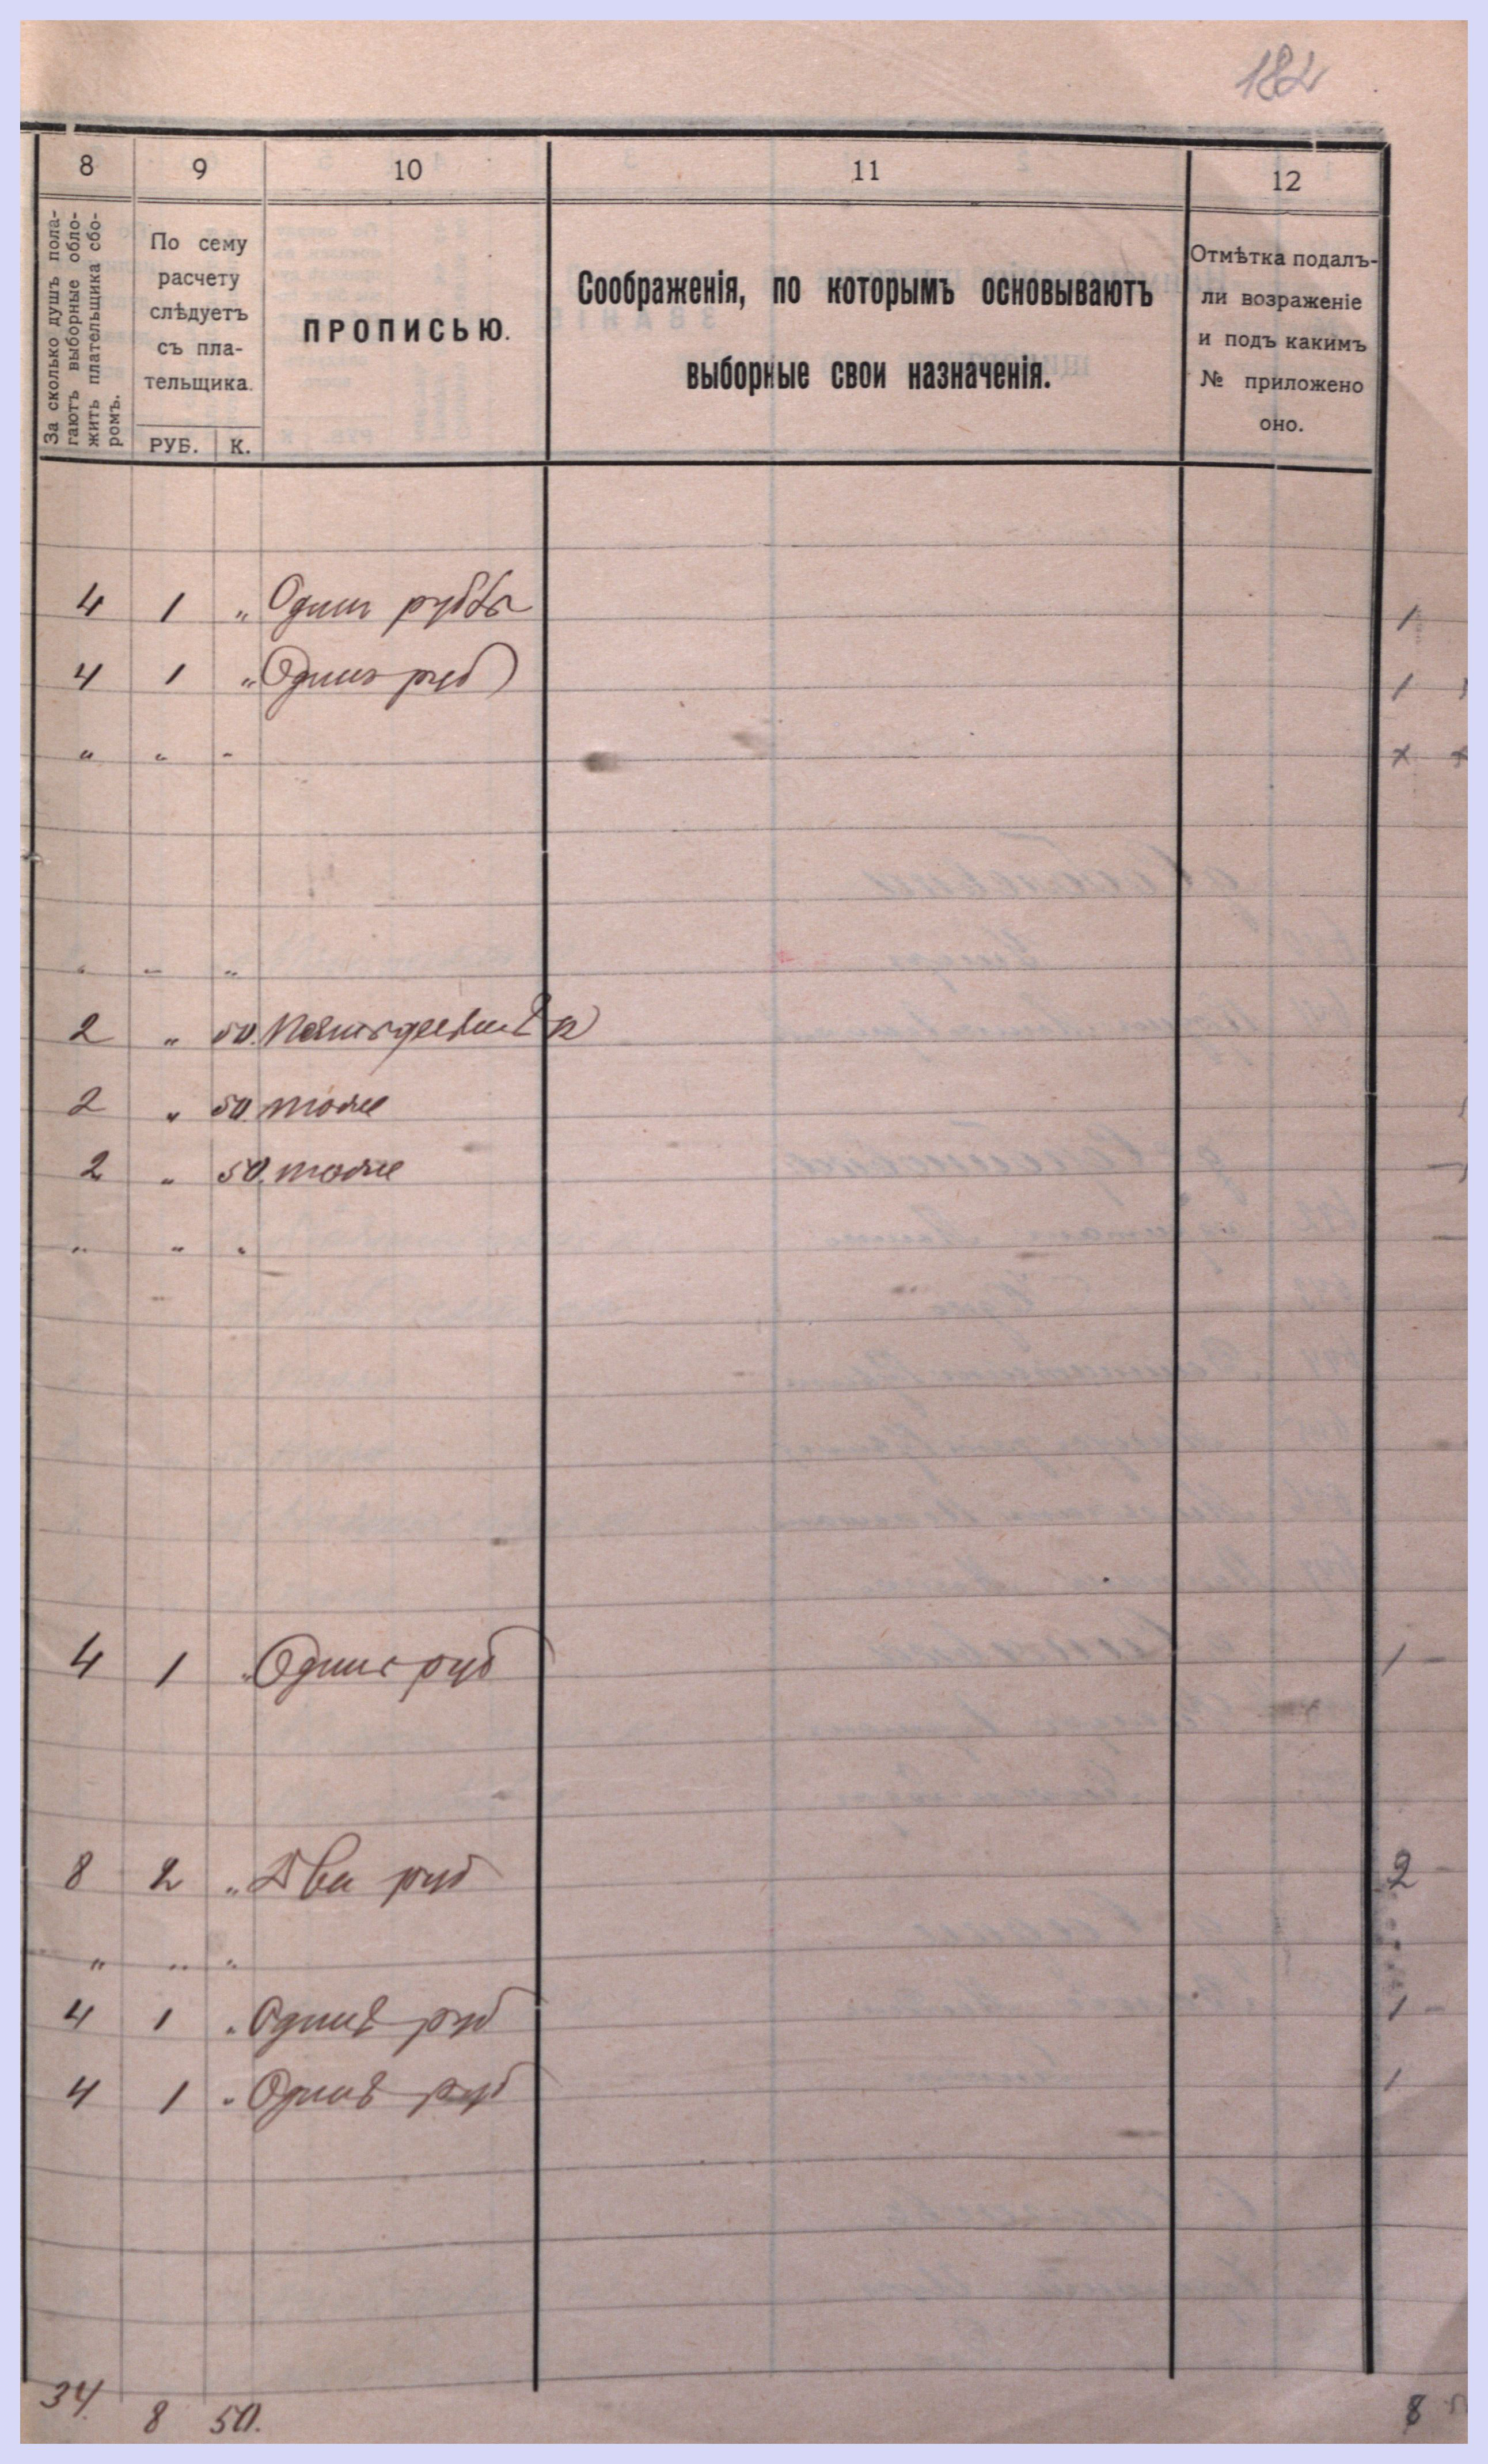 182
8 9 10 11 12
За сколько душъ пола-
гаютъ выборные обло-
жить плательщика сбо-
ромъ.
По сему
расчету
слѣдуетъ
съ пла-
тельщика.
РУБ. К.
ПРОПИСЬЮ.
Соображенія, по которымъ основываютъ
выборные свои назначенія.
Отмѣтка подалъ-
ли возраженіе
и подъ какимъ
№ приложено
оно.
4 1 „ Одинъ рубль 1
4 1 „ Одинъ руб 1
„ „ „ x
„ „ „
2 „ 50. Пятьдесятъ к
2 „ 50. тоже
2 „ 50. тоже
„ „ „
4 1 „ Одинъ руб 1 -
8 2 „ Два руб 2 -
„ „ „
4 1 „ Одинъ руб 1 -
4 1 „ Одинъ руб 1
34. 8 50. 8